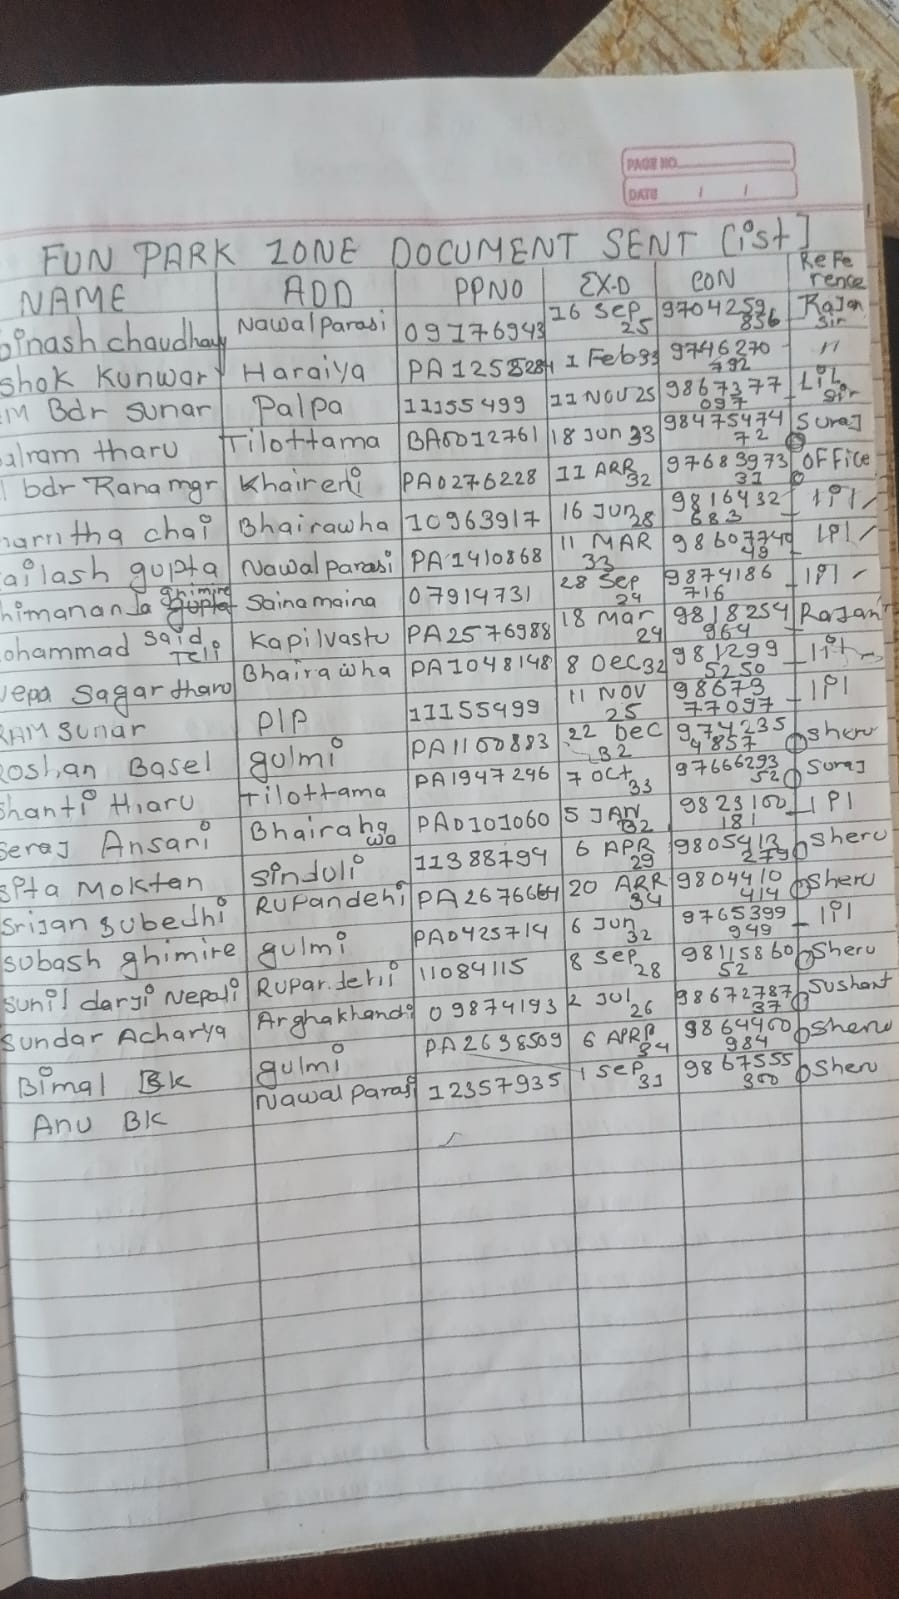 PAGE NO.
DATE / /
FUN PARK ZONE DOCUMENT SENT [ist]
NAME ADD PPNO EX.D CON Refe rence
binash chaudhary Nawalparasi 09176943 16 Sep 25 9704259 856 Rajan Sir
shok Kunwar Haraiya PA1258284 1 Feb 33 9746270 792 "
m Bdr Sunar Palpa 11155499 11 NOV 25 9867377 097 Lil Sir
alram tharu Tilottama BA0012761 18 Jun 33 98475474 72 Suraj
bdr Rana mgr Khaireni PA0276228 11 APR 32 97683973 31 OFFICE
chai Bhairawha 10963917 16 Jun 28 9816432 683 IPI
ailash gupta Nawalparasi PA1410868 11 MAR 33 98607740 49 IPI
himananda ghimire Sainamaina 07914731 28 Sep 24 9874186 716 IPI
ohammad said Teli Kapilvastu PA2576988 18 Mar 24 9818254 964 Rajan
Sagar tharu Bhairawha PA1048148 8 Dec 32 981299 5250
RAM Sunar PIP 11155499 11 NOV 25 98673 77097 IPI
Roshan Basel gulmi PA1100883 22 Dec 32 974235 4857 sheru
hanti tharu Tilottama PA1947246 7 Oct 33 97666293 52 Suraj
seraj Ansari Bhairahawa PA0101060 5 JAN 32 9823100 181 IPI
sita Moktan Sinduli 11388794 6 APR 29 9805413 279 Sheru
Srijan Subedhi Rupandehi PA2676664 20 APR 34 9804410 414 Sheru
Subash ghimire gulmi PA0425714 6 Jun 32 9765399 949 IPI
Sunil darji Nepali Rupandehi 11084115 8 Sep 28 98115860 52 Sheru
Sundar Acharya Arghakhandi 09874193 2 Jul 26 98672787 37 Sushant
Bimal Bk gulmi PA2638509 6 APR 34 9864400 984 Sheru
Anu BK Nawalparasi 12357935 1 Sep 31 9867555 300 Sheru